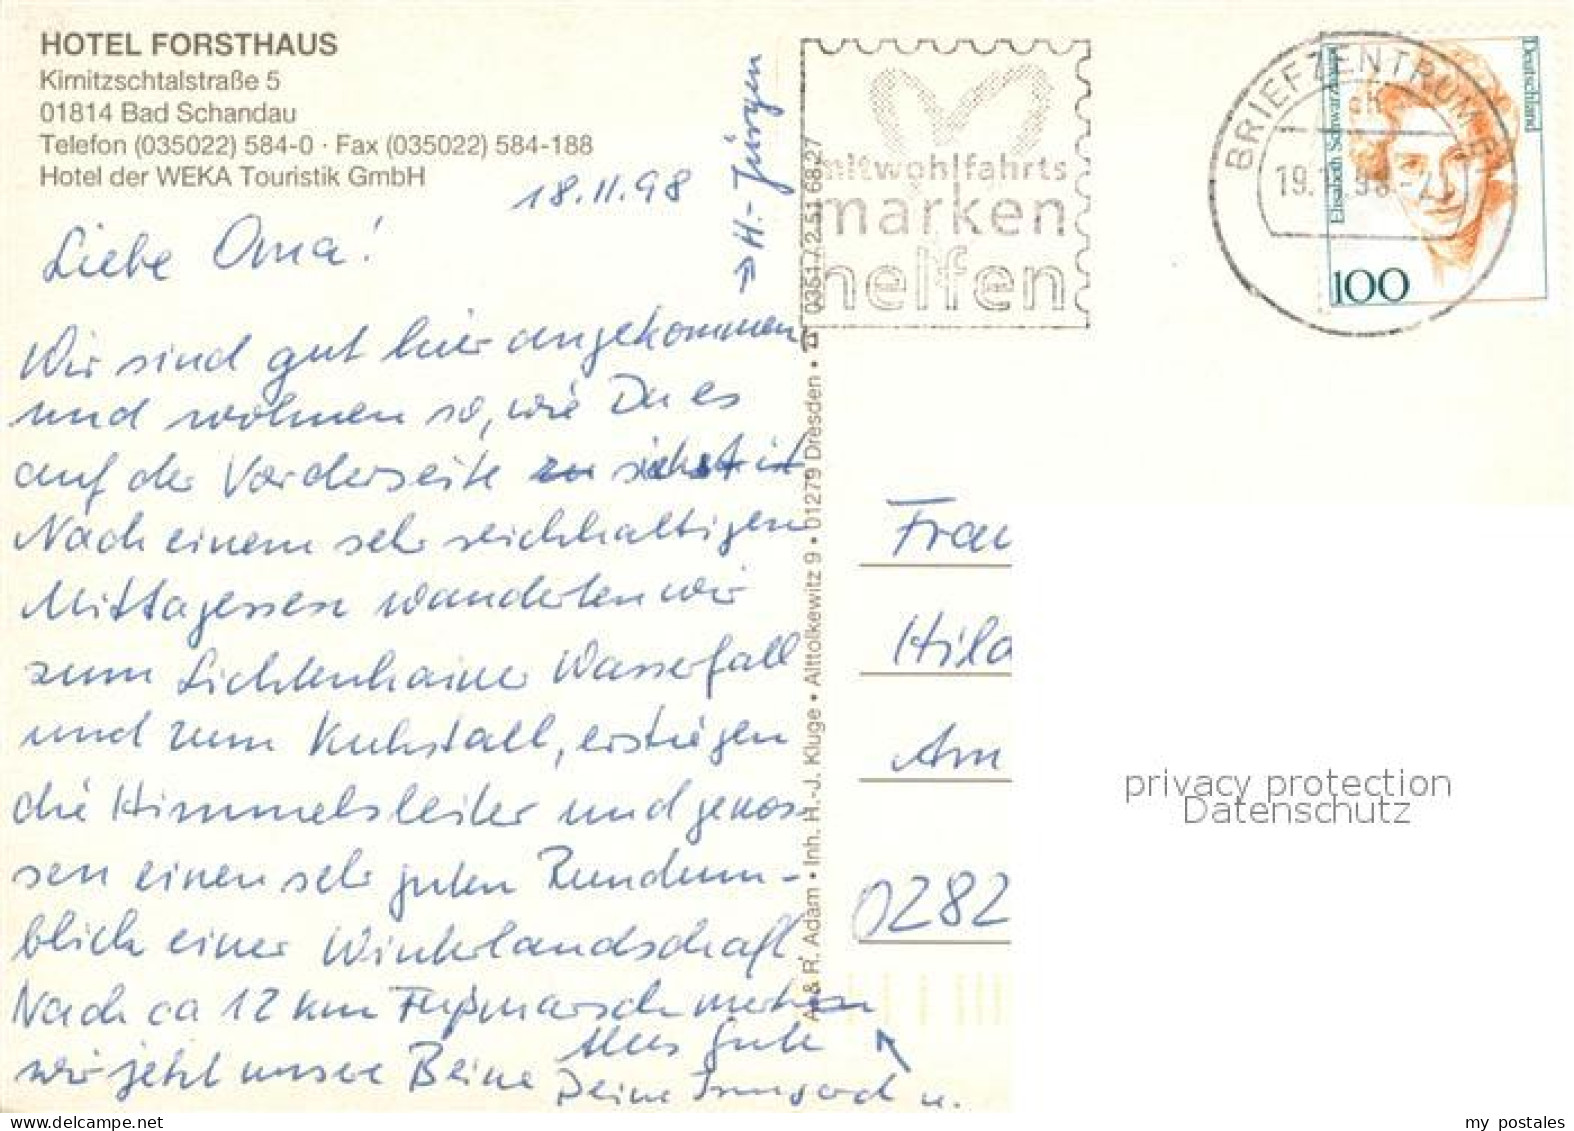 HOTEL FORSTHAUS
Kirnitzschtalstraße 5
01814 Bad Schandau
Telefon (035022) 584-0 · Fax (035022) 584-188
Hotel der WEKA Touristik GmbH
18.11.98
Liebe Oma!
Wir sind gut hier angekommen
und wohnen so, wie Du es
auf der Vorderseite
Nach einem sehr reichhaltigen
Mittagessen wanderten wir
zum Lichtenhainer Wasserfall
und zum Kuhstall, erstiegen
die Himmelsleiter und genos-
sen einen sehr guten Rundum-
blick einer Winterlandschaft
Nach ca 12 km Fußmarsch merken
wir jetzt unsere Beine
Alles Gute
Deine Irmgard u.
H.-Jürgen
A. & R. Adam • Inh. H.-J. Kluge • Alttolkewitz 9 • 01279 Dresden • ☎ 0351 / 2 51 68 27
mit wohlfahrts
marken
helfen
BRIEFZENTRUM
Deutschland
Elisabeth Schwarzhaupt
100
Frau
Hild
Am
0282
privacy protection
Datenschutz
my postales